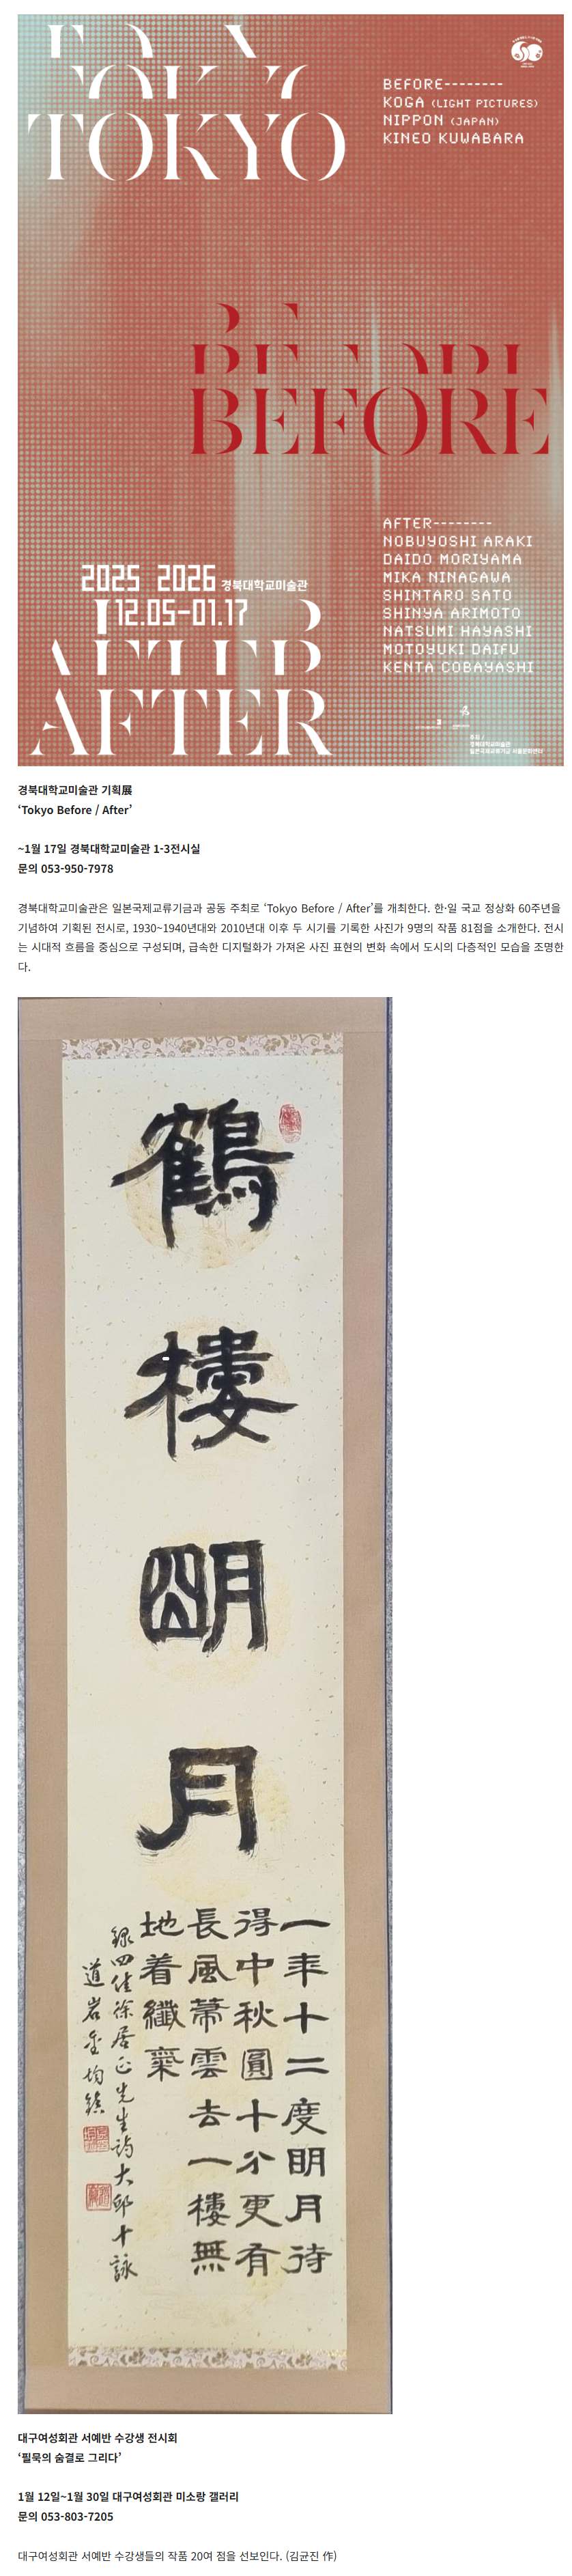 TOKYO
BEFORE--------
KOGA (LIGHT PICTURES)
NIPPON (JAPAN)
KINEO KUWABARA
BEFORE
AFTER--------
NOBUYOSHI ARAKI
DAIDO MORIYAMA
MIKA NINAGAWA
SHINTARO SATO
SHINYA ARIMOTO
NATSUMI HAYASHI
MOTOYUKI DAIFU
KENTA COBAYASHI
2025 2026 경북대학교미술관
12.05-01.17
AFTER
주최 /
경북대학교미술관
일본국제교류기금 서울문화센터
경북대학교미술관 기획展
‘Tokyo Before / After’
~1월 17일 경북대학교미술관 1-3전시실
문의 053-950-7978
경북대학교미술관은 일본국제교류기금과 공동 주최로 ‘Tokyo Before / After’를 개최한다. 한·일 국교 정상화 60주년을
기념하여 기획된 전시로, 1930~1940년대와 2010년대 이후 두 시기를 기록한 사진가 9명의 작품 81점을 소개한다. 전시
는 시대적 흐름을 중심으로 구성되며, 급속한 디지털화가 가져온 사진 표현의 변화 속에서 도시의 다층적인 모습을 조명한
다.
鶴
樓
明
月
一年十二度明月待
得中秋圓十分更有
長風箒雲去一樓無
地着纖塵
錄四佳徐居正先生詩大邱十詠
道岩金均鎭
대구여성회관 서예반 수강생 전시회
‘필묵의 숨결로 그리다’
1월 12일~1월 30일 대구여성회관 미소랑 갤러리
문의 053-803-7205
대구여성회관 서예반 수강생들의 작품 20여 점을 선보인다. (김균진 作)